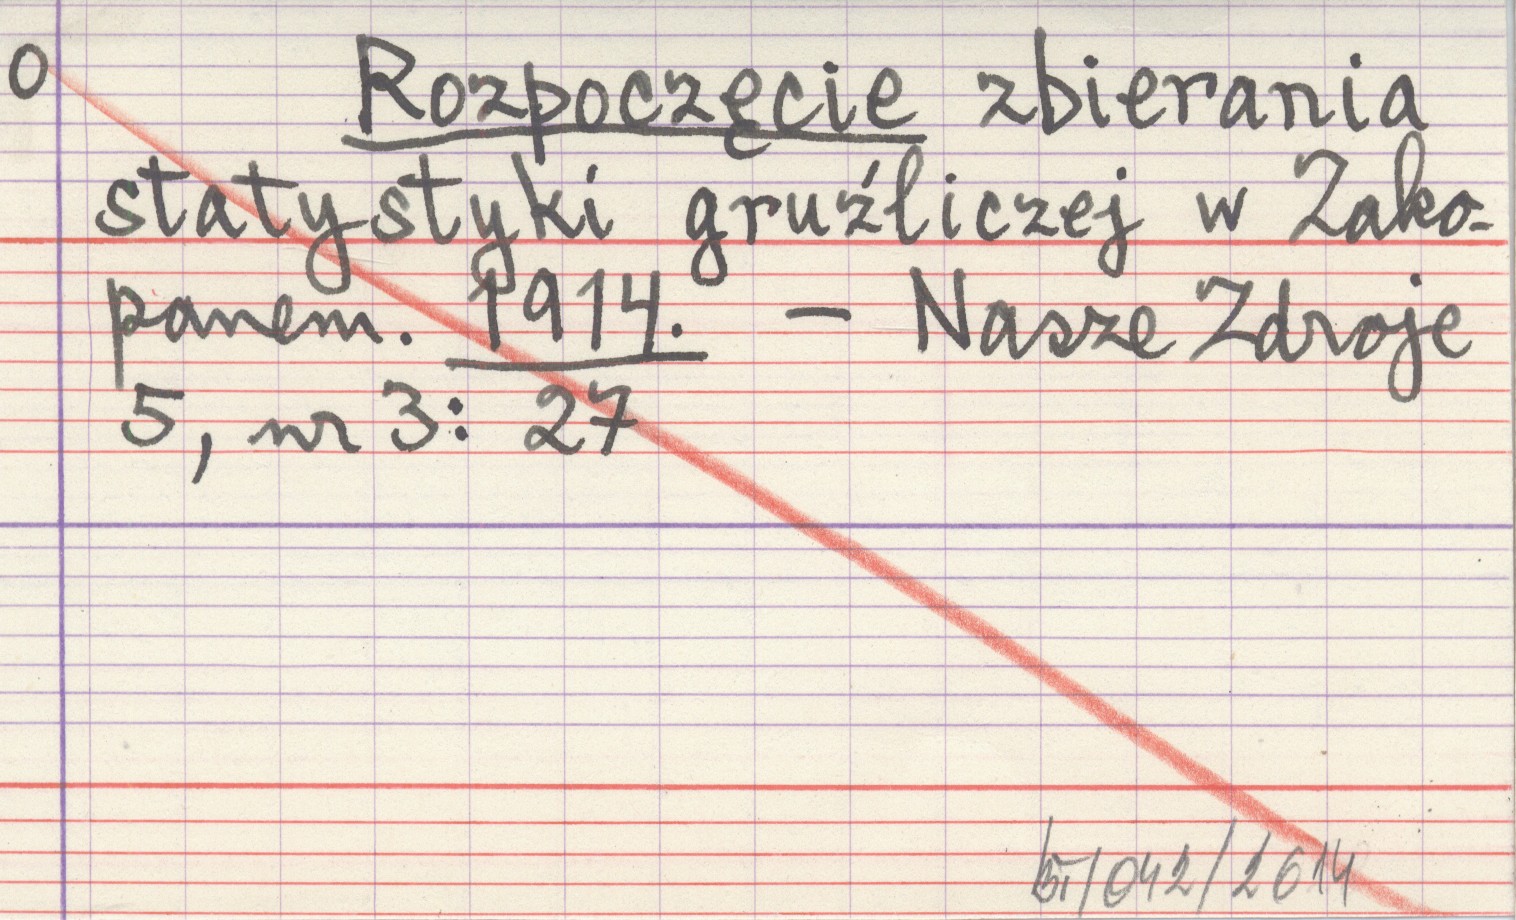 O Rozpoczęcie zbierania
statystyki gruźliczej w Zako-
panem. 1914. — Nasze Zdroje
5, nr 3: 27
/042/2614